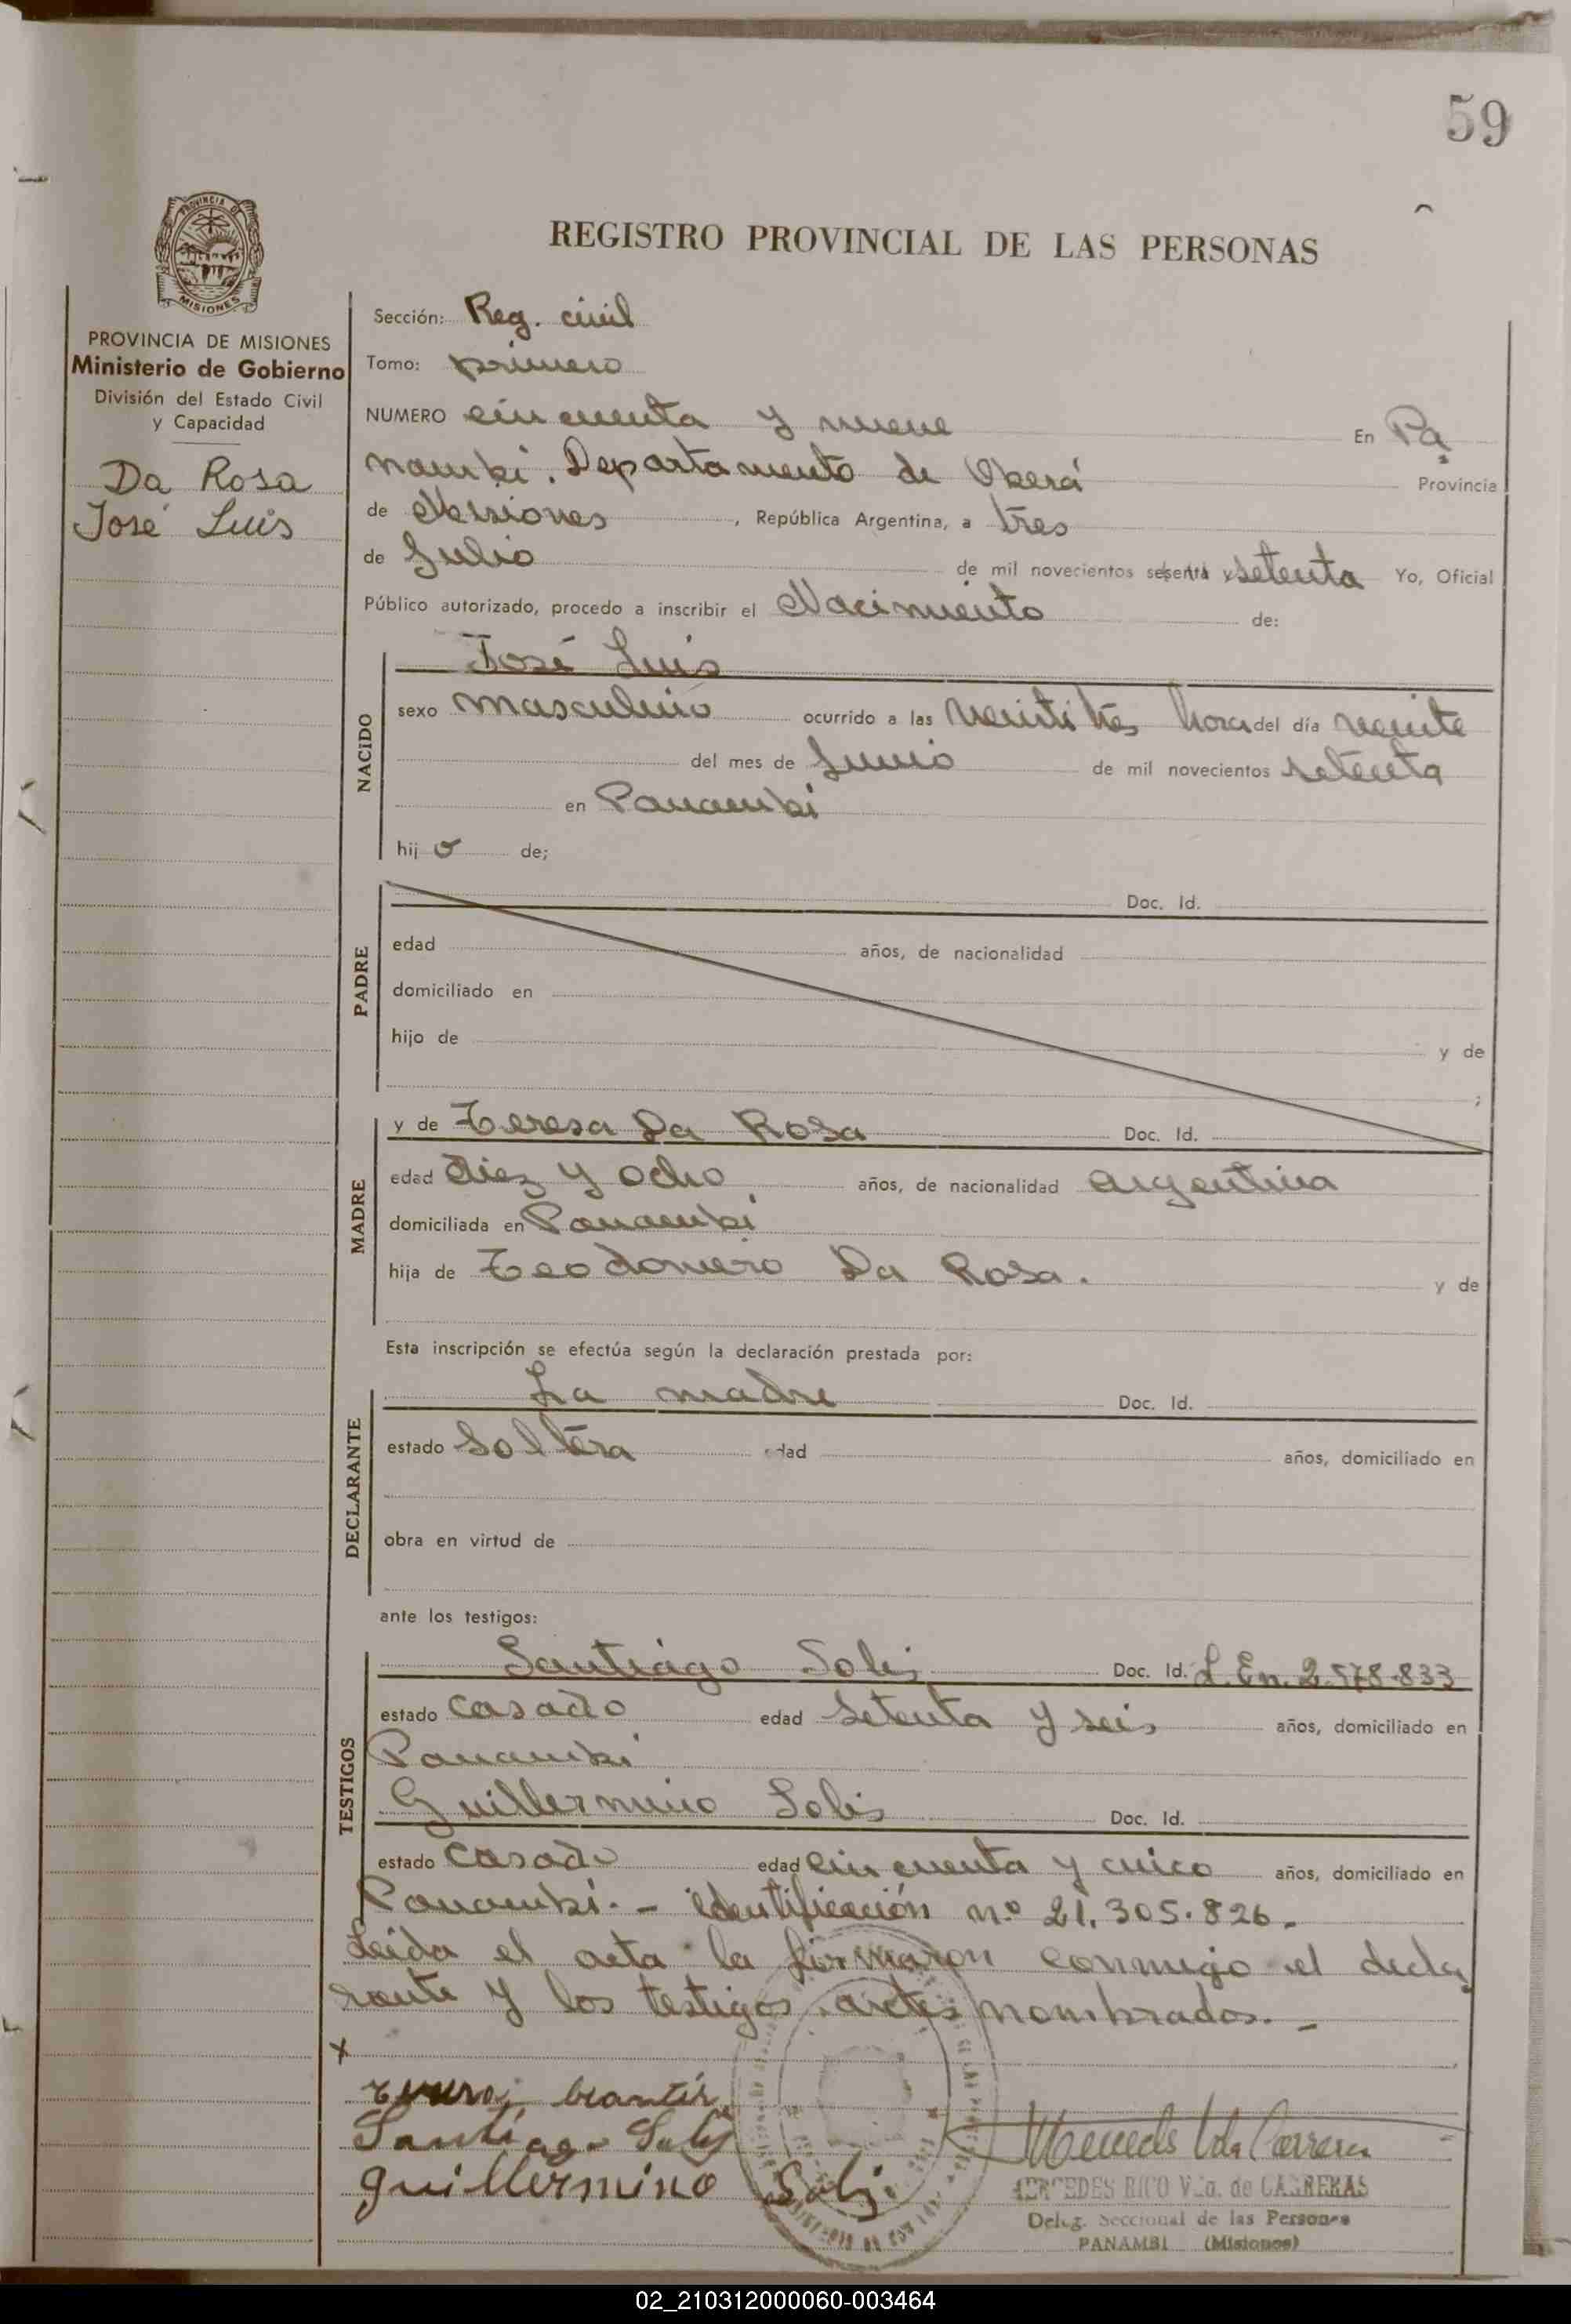 59
PROVINCIA DE
MISIONES
REGISTRO PROVINCIAL DE LAS PERSONAS
PROVINCIA DE MISIONES
Ministerio de Gobierno
División del Estado Civil
y Capacidad
Da Rosa
José Luis
Sección: Reg. civil
Tomo: primero
NUMERO cincuenta y nueve En Pa
nambí. Departamento de Oberá Provincia
de Misiones, República Argentina, a tres
de Julio de mil novecientos sesenta y setenta Yo, Oficial
Público autorizado, procedo a inscribir el Nacimiento de:
NACIDO
José Luis
sexo masculino ocurrido a las veintitrés hora del día veinte
del mes de Junio de mil novecientos setenta
en Panambí
hijo de;
PADRE
Doc. Id.
edad años, de nacionalidad
domiciliado en
hijo de y de
;
MADRE
y de Teresa Da Rosa Doc. Id.
edad diez y ocho años, de nacionalidad argentina
domiciliada en Panambí
hija de Teodomiro Da Rosa. y de
Esta inscripción se efectúa según la declaración prestada por:
DECLARANTE
La madre Doc. Id.
estado Soltera edad años, domiciliado en
obra en virtud de
ante los testigos:
TESTIGOS
Santiago Solis Doc. Id. L. En. 2.578.833
estado casado edad setenta y seis años, domiciliado en
Panambí
Guillermino Solis Doc. Id.
estado casado edad cincuenta y cinco años, domiciliado en
Panambí. - identificación nº 21.305.826.
Leida el acta la firmaron conmigo el decla
rante y los testigos antes nombrados. -
x
Santiago Solis
guillermino Solis
MERCEDES RICO Vda. de CARRERAS
Deleg. Seccional de las Personas
PANAMBI (Misiones)
02_210312000060-003464